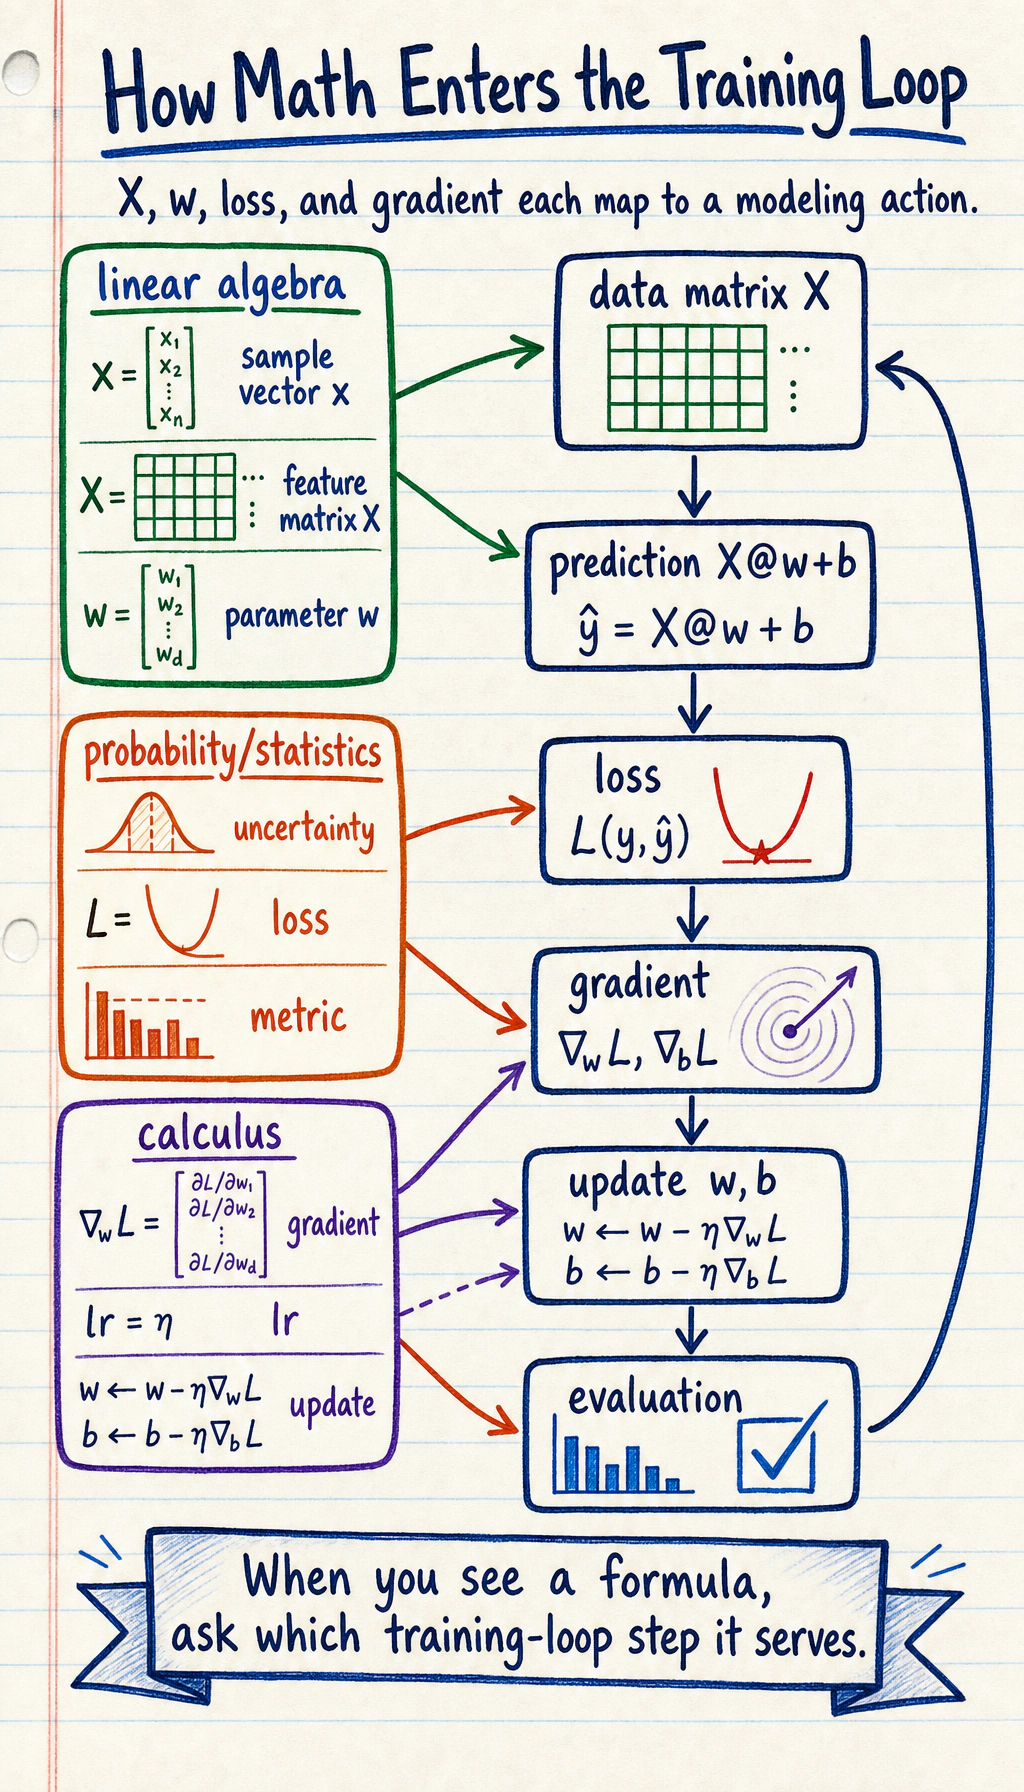 How Math Enters the Training Loop
X, w, loss, and gradient each map to a modeling action.
linear algebra
X = [x₁ x₂ ⋮ xₙ] sample vector x
X = ... ⋮ feature matrix X
w = [w₁ w₂ ⋮ w_d] parameter w
probability/statistics
uncertainty
L = loss
metric
calculus
∇wL = [∂L/∂w₁ ∂L/∂w₂ ⋮ ∂L/∂w_d] gradient
lr = η lr
w ← w - η∇wL
b ← b - η∇bL
update
data matrix X
... ⋮
prediction X@w+b
ŷ = X@w + b
loss
L(y,ŷ)
gradient
∇wL, ∇bL
update w, b
w ← w - η∇wL
b ← b - η∇bL
evaluation
When you see a formula,
ask which training-loop step it serves.